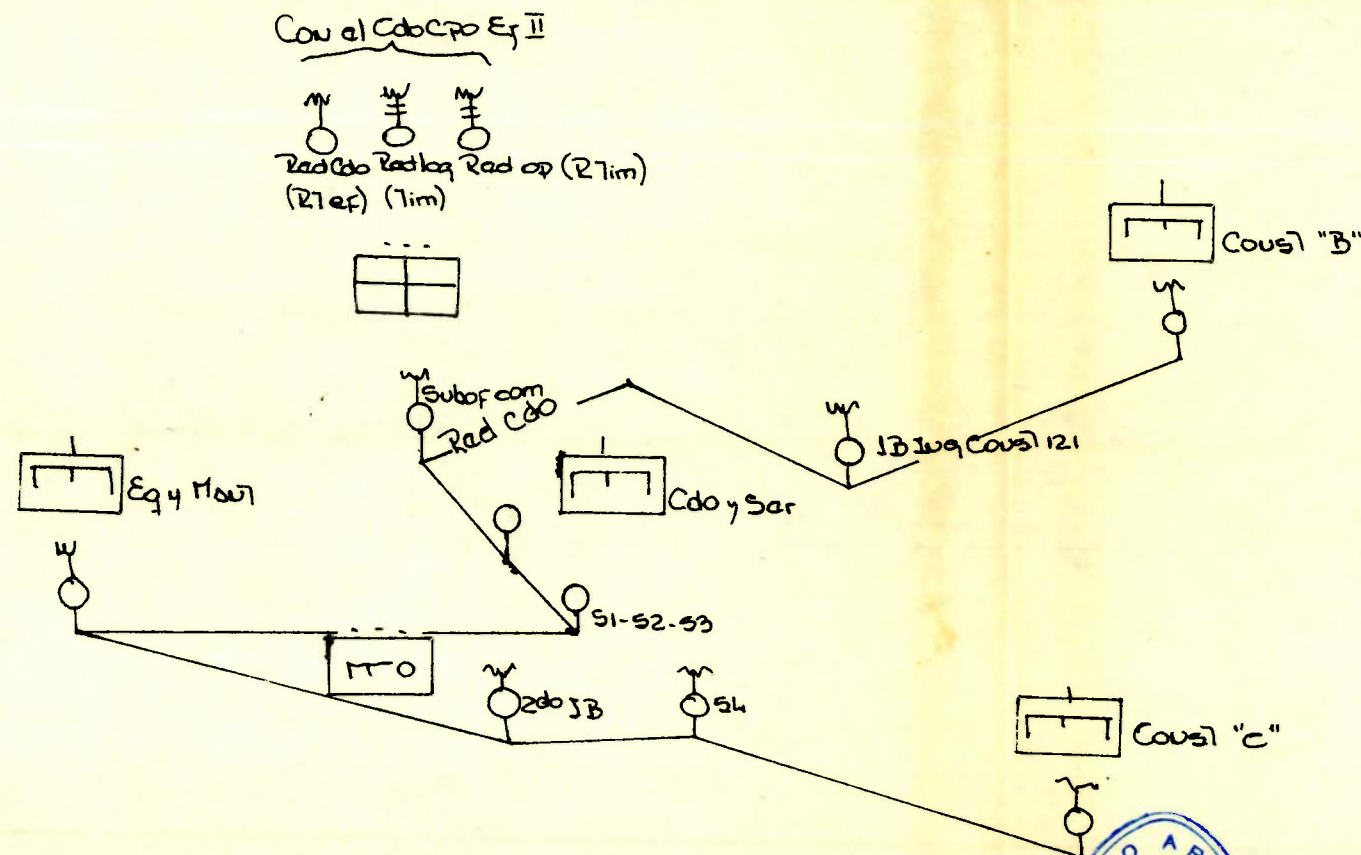 Con el Cdo Cpo Ej II
Rad Cdo Rad log Rad op (RTim)
(RTef) (Tim)
Const "B"
Subof com
Rad Cdo
JB Ing Const 121
Eq y Mant
Cdo y Ser
S1-S2-S3
2do JB
S4
Const "C"